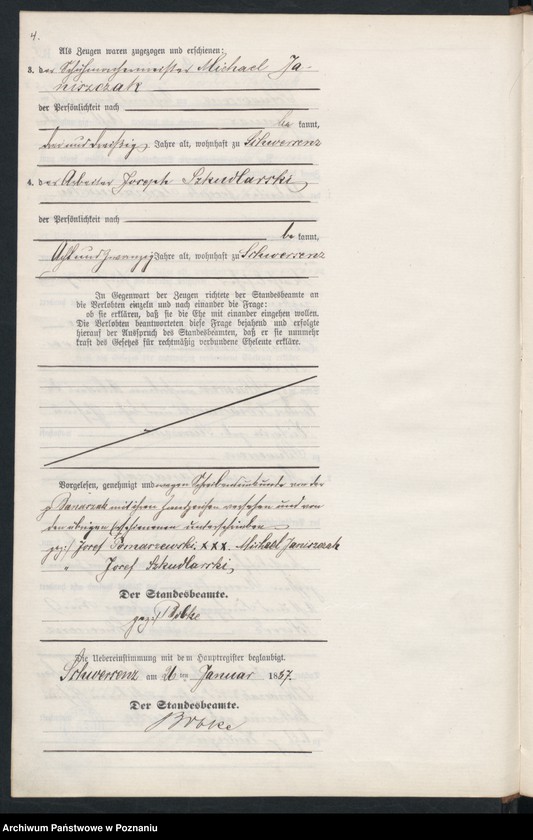 4.
Als Zeugen waren zugezogen und erschienen:
3. der Schuhmachermeister Michael Ja-
niszczak
der Persönlichkeit nach
be kannt,
drei und dreißig Jahre alt, wohnhaft zu Schwersenz
4. der Arbeiter Joseph Szkudlarski
der Persönlichkeit nach
be kannt,
Acht und zwanzig Jahre alt, wohnhaft zu Schwersenz
In Gegenwart der Zeugen richtete der Standesbeamte an
die Verlobten einzeln und nach einander die Frage:
ob sie erklären, daß sie die Ehe mit einander eingehen wollen.
Die Verlobten beantworteten diese Frage bejahend und erfolgte
hierauf der Ausspruch des Standesbeamten, daß er sie nunmehr
kraft des Gesetzes für rechtmäßig verbundene Eheleute erkläre.
Vorgelesen, genehmigt und wegen Schreibensunkunde von der
p Banaszak mit ihren Handzeichen versehen und von
den übrigen Erschienenen unterschrieben
gez: Josef Pomarzewski. xxx. Michael Janiszczak
" Josef Szkudlarski
Der Standesbeamte.
gez:
Die Uebereinstimmung mit dem Hauptregister beglaubigt.
Schwersenz am 26 ten Januar 1887.
Der Standesbeamte.
Archiwum Państwowe w Poznaniu